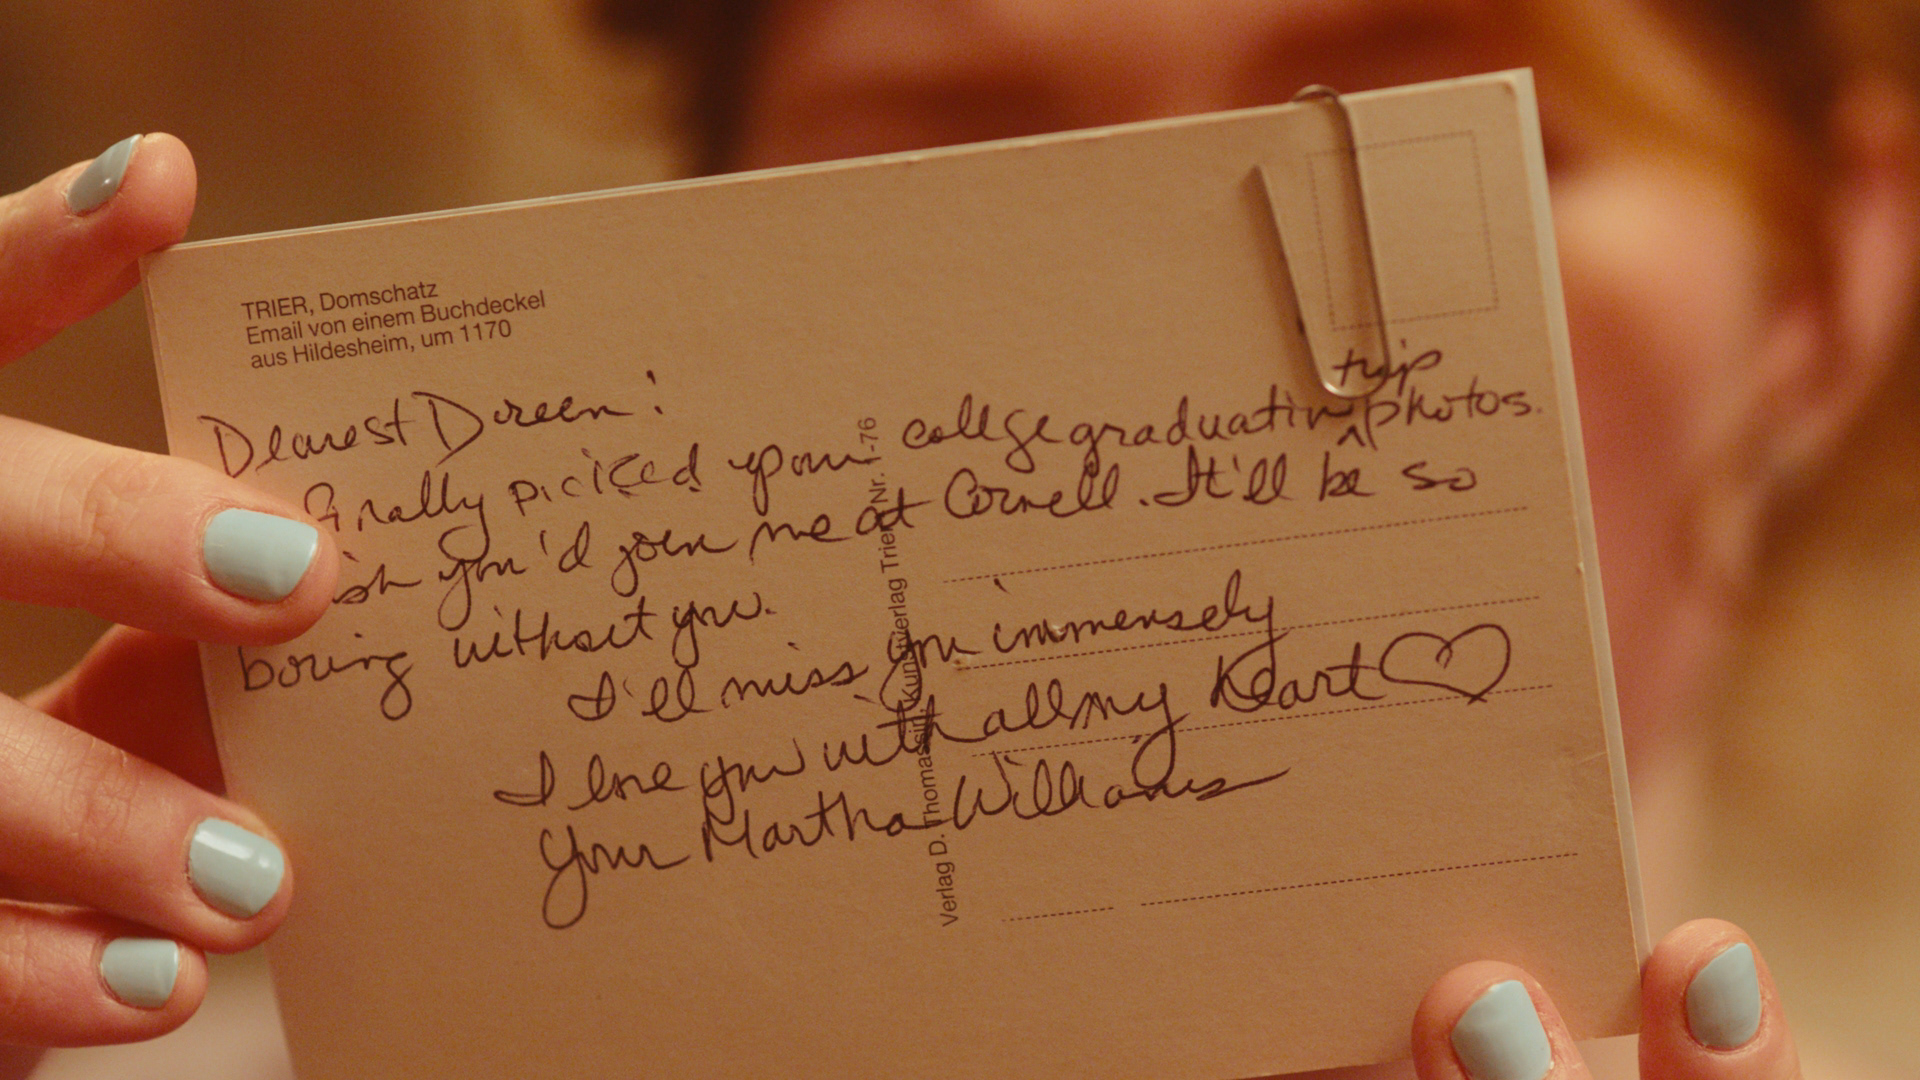 TRIER, Domschatz
Email von einem Buchdeckel
aus Hildesheim, um 1170
Dearest Doreen!
finally picked your college graduation trip photos.
ish you'd join me at Cornell. It'll be so
boring without you.
I'll miss you immensely
I love you with all my heart
your Martha Williams
Verlag D. Thomassin, Kunstverlag Trier Nr. -76